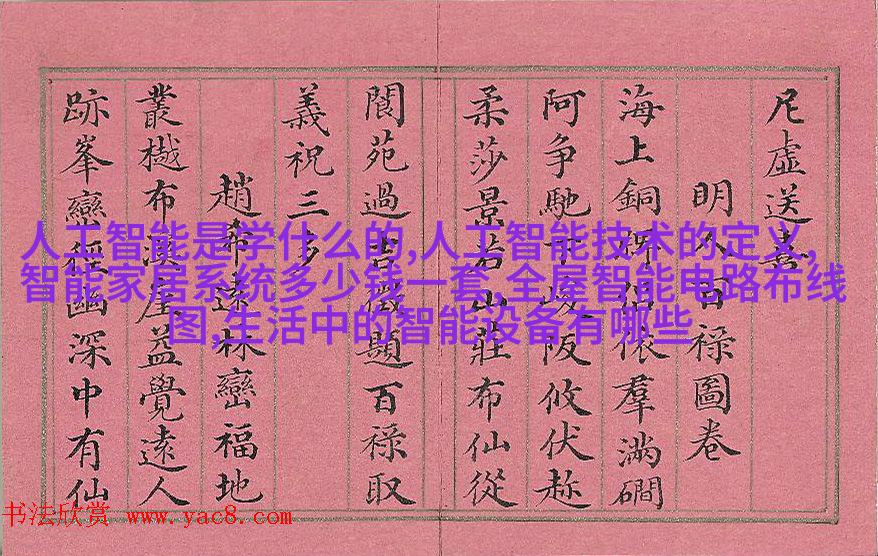 尼虛送喜
明人百祿圖卷
海上銅侶依羣滿磵
阿爭馳下峻阪攸伏趂
柔莎景若山莊布仙從
閬苑過書徵題百祿取
義祝三多
趙希遠林巒福地
叢樾布濃崖益覺遠人
跡峯巒徑幽深中有仙
人工智能是学什么的,人工智能技术的定义,
智能家居系统多少钱一套,全屋智能电路布线
图,生活中的智能设备有哪些
书法欣赏 www.yac8.com